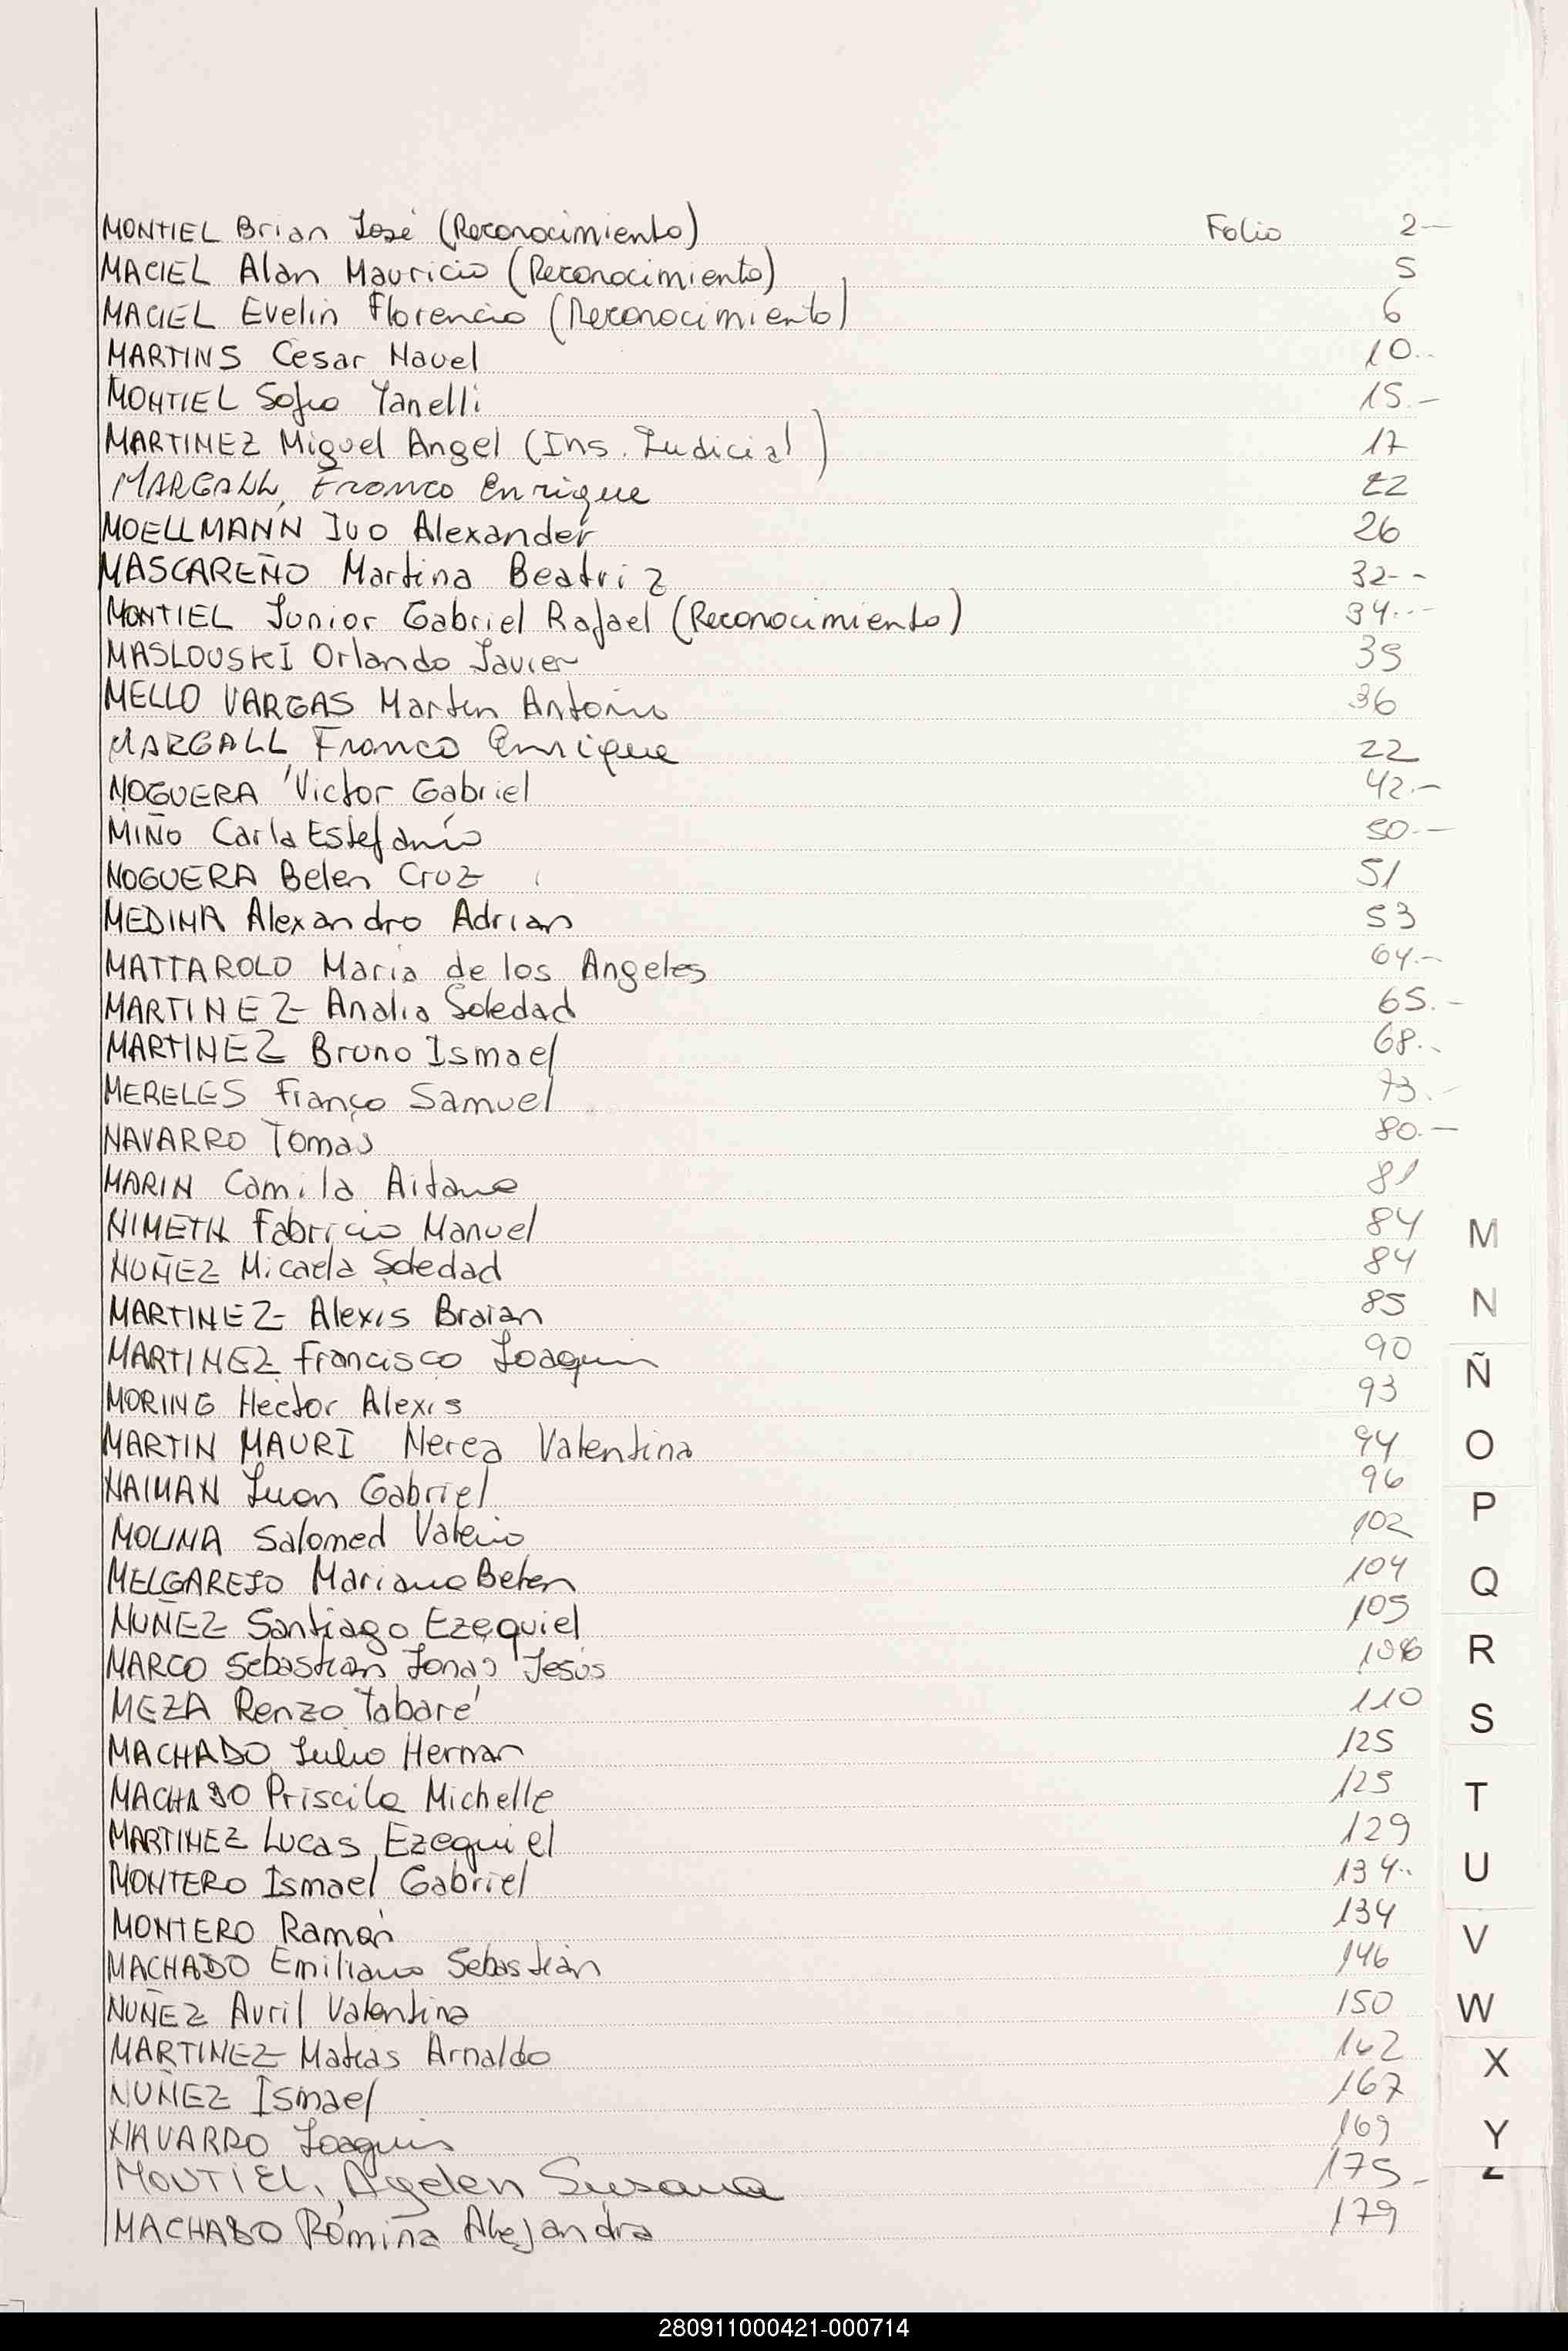 MONTIEL Brian José (Reconocimiento) Folio 2-
MACIEL Alan Mauricio (Reconocimiento) 5
MACIEL Evelin Florencia (Reconocimiento) 6
MARTINS Cesar Nauel 10.-
MONTIEL Sofia Yanelli 15.-
MARTINEZ Miguel Angel (Ins. Judicial) 17
MARGALL, Franco Enrique 22
MOELLMANN Ivo Alexander 26
MASCAREÑO Martina Beatriz 32--
MONTIEL Junior Gabriel Rafael (Reconocimiento) 34.--
MASLOUSKI Orlando Javier 35
MELLO VARGAS Martin Antonio 36
MARGALL, Franco Enrique 22
NOGUERA Victor Gabriel 42.-
MIÑO Carla Estefanía 50.-
NOGUERA Belen Cruz 51
MEDINA Alexandro Adrian 53
MATTAROLO Maria de los Angeles 64.-
MARTINEZ Analia Soledad 65.-
MARTINEZ Bruno Ismael 68..
MERELES Franco Samuel 73.-
NAVARRO Tomas 80.-
MARIN Camila Aitana 81
NIMETH Fabricio Manuel 84
NUÑEZ Micaela Soledad 84
MARTINEZ Alexis Braian 85
MARTINEZ Francisco Joaquin 90
MORING Hector Alexis 93
MARTIN MAURI Nerea Valentina 94
NAIMAN Juan Gabriel 96
MOLINA Salomed Valeria 102
MELGAREJO Mariana Belen 104
NUÑEZ Santiago Ezequiel 105
MARCO Sebastian Jonas Jesús 106
MEZA Renzo Tabaré 110
MACHADO Julio Hernan 125
MACHADO Priscila Michelle 125
MARTINEZ Lucas Ezequiel 129
MONTERO Ismael Gabriel 134..
MONTERO Ramón 134
MACHADO Emiliano Sebastián 146
NUÑEZ Avril Valentina 150
MARTINEZ Matias Arnaldo 162
NUÑEZ Ismael 167
NAVARRO Joaquin 169
MONTIEL, Ayelen Susana 175-
MACHADO Romina Alejandra 179
M
N
Ñ
O
P
Q
R
S
T
U
V
W
X
Y
Z
280911000421-000714